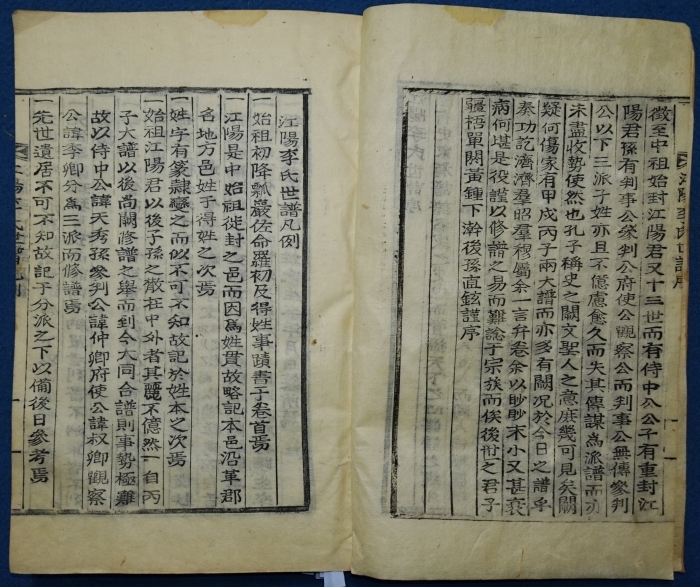 徵至中祖始封江陽君又十三世而有侍中公公子有重封江
陽君孫有判事公叅判公府使公觀察公而判事公無傳叅判
公以下三派子姓亦且不億慮愈久而失其傳謀為派譜而亦
未盡收勢使然也孔子稱史之闕文聖人之意庶幾可見矣闕
疑何傷家有甲戌丙子兩大譜而亦多有闕况於今日之譜乎
秦功訖濟濟羣昭羣穆屬余一言弁卷余以眇眇末小又甚衰
病何堪是役謹以修譜之易而難諗于宗族而俟後裔之君子
彊梧單閼黃鍾下澣後孫直鉉謹序
江陽李氏世譜序
江陽李氏世譜凡例
一始祖初降瓢巖佐命羅初及得姓事蹟書于卷首焉
一江陽是中始祖徙封之邑而因為姓貫故略記本邑沿革郡
名地方邑姓于得姓之次焉
一姓字有篆隷變之而似不可不知故記於姓本之次焉
一始祖江陽君以後子孫之散在中外者其麗不億然一自丙
子大譜以後尚闕修譜之舉而到今大同合譜則事勢極難
故以侍中公諱天秀孫叅判公諱仲卿府使公諱叔卿觀察
公諱季卿分為三派而修譜焉
一先世遺居不可不知故記于分派之下以備後日參考焉
江陽李氏世譜凡例